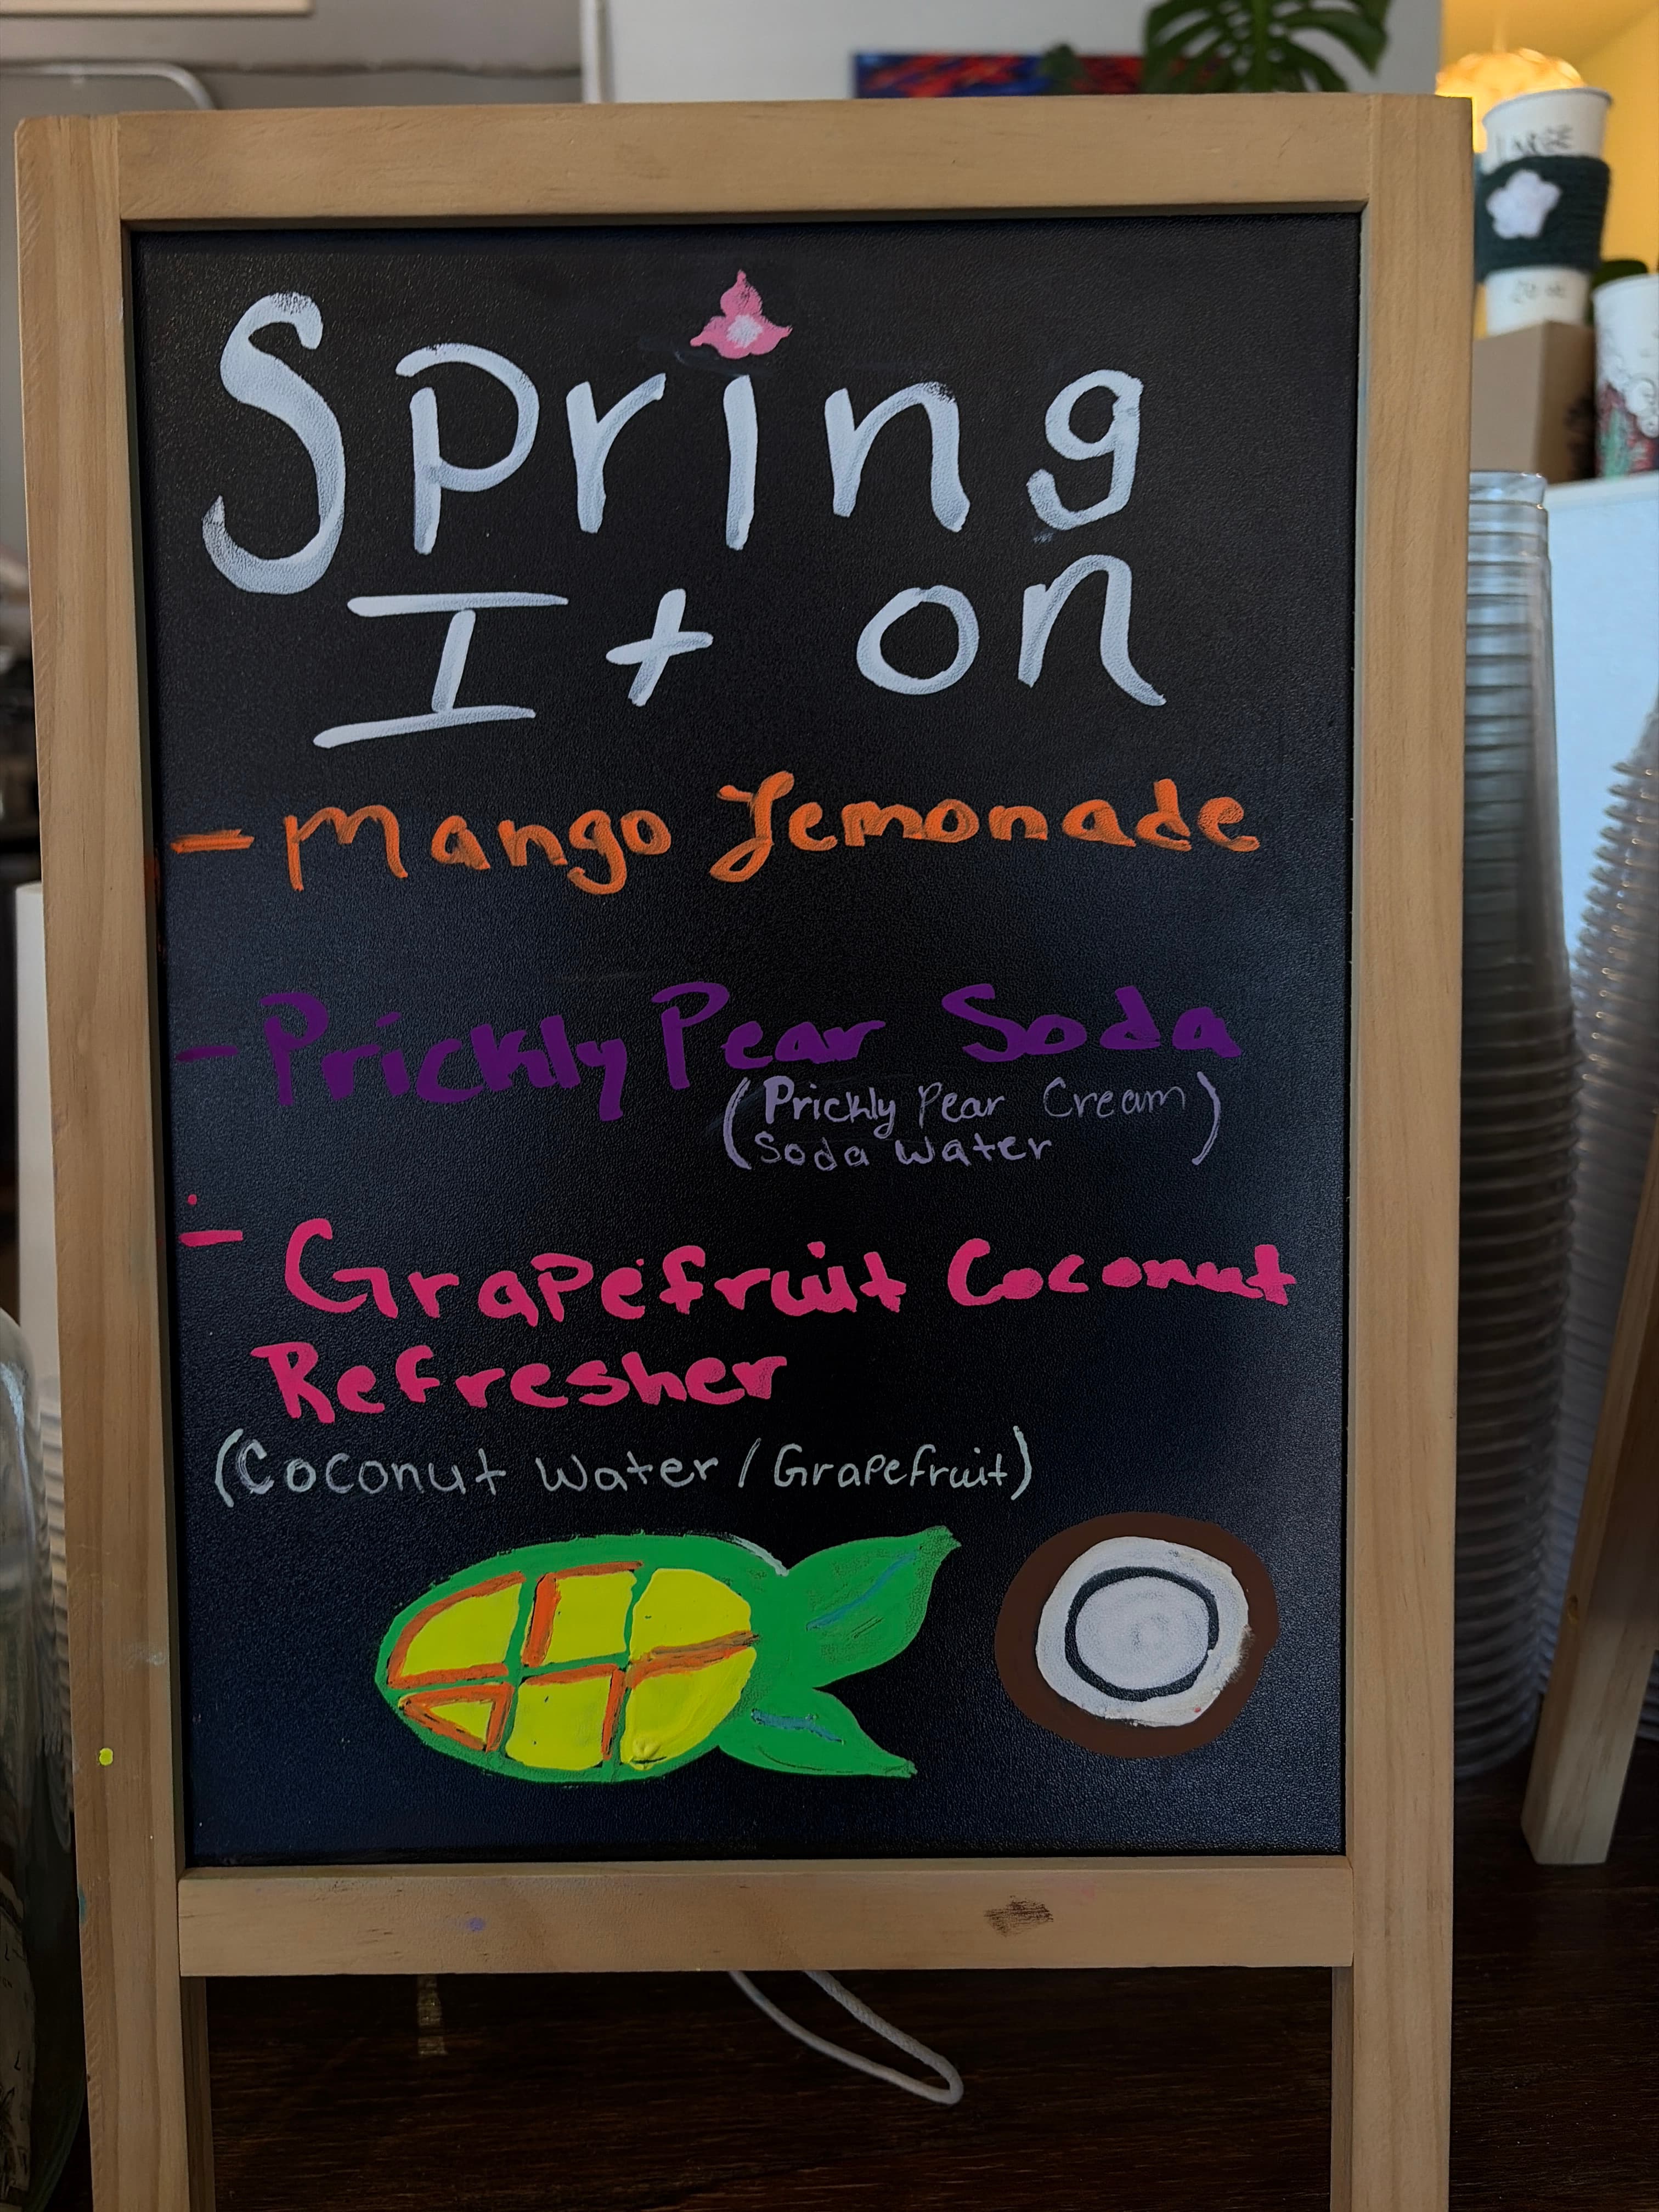 Spring
It on
- Mango Lemonade
- Prickly Pear Soda
(Prickly Pear Cream
Soda Water)
- Grapefruit Coconut
Refresher
(Coconut Water / Grapefruit)
LARGE